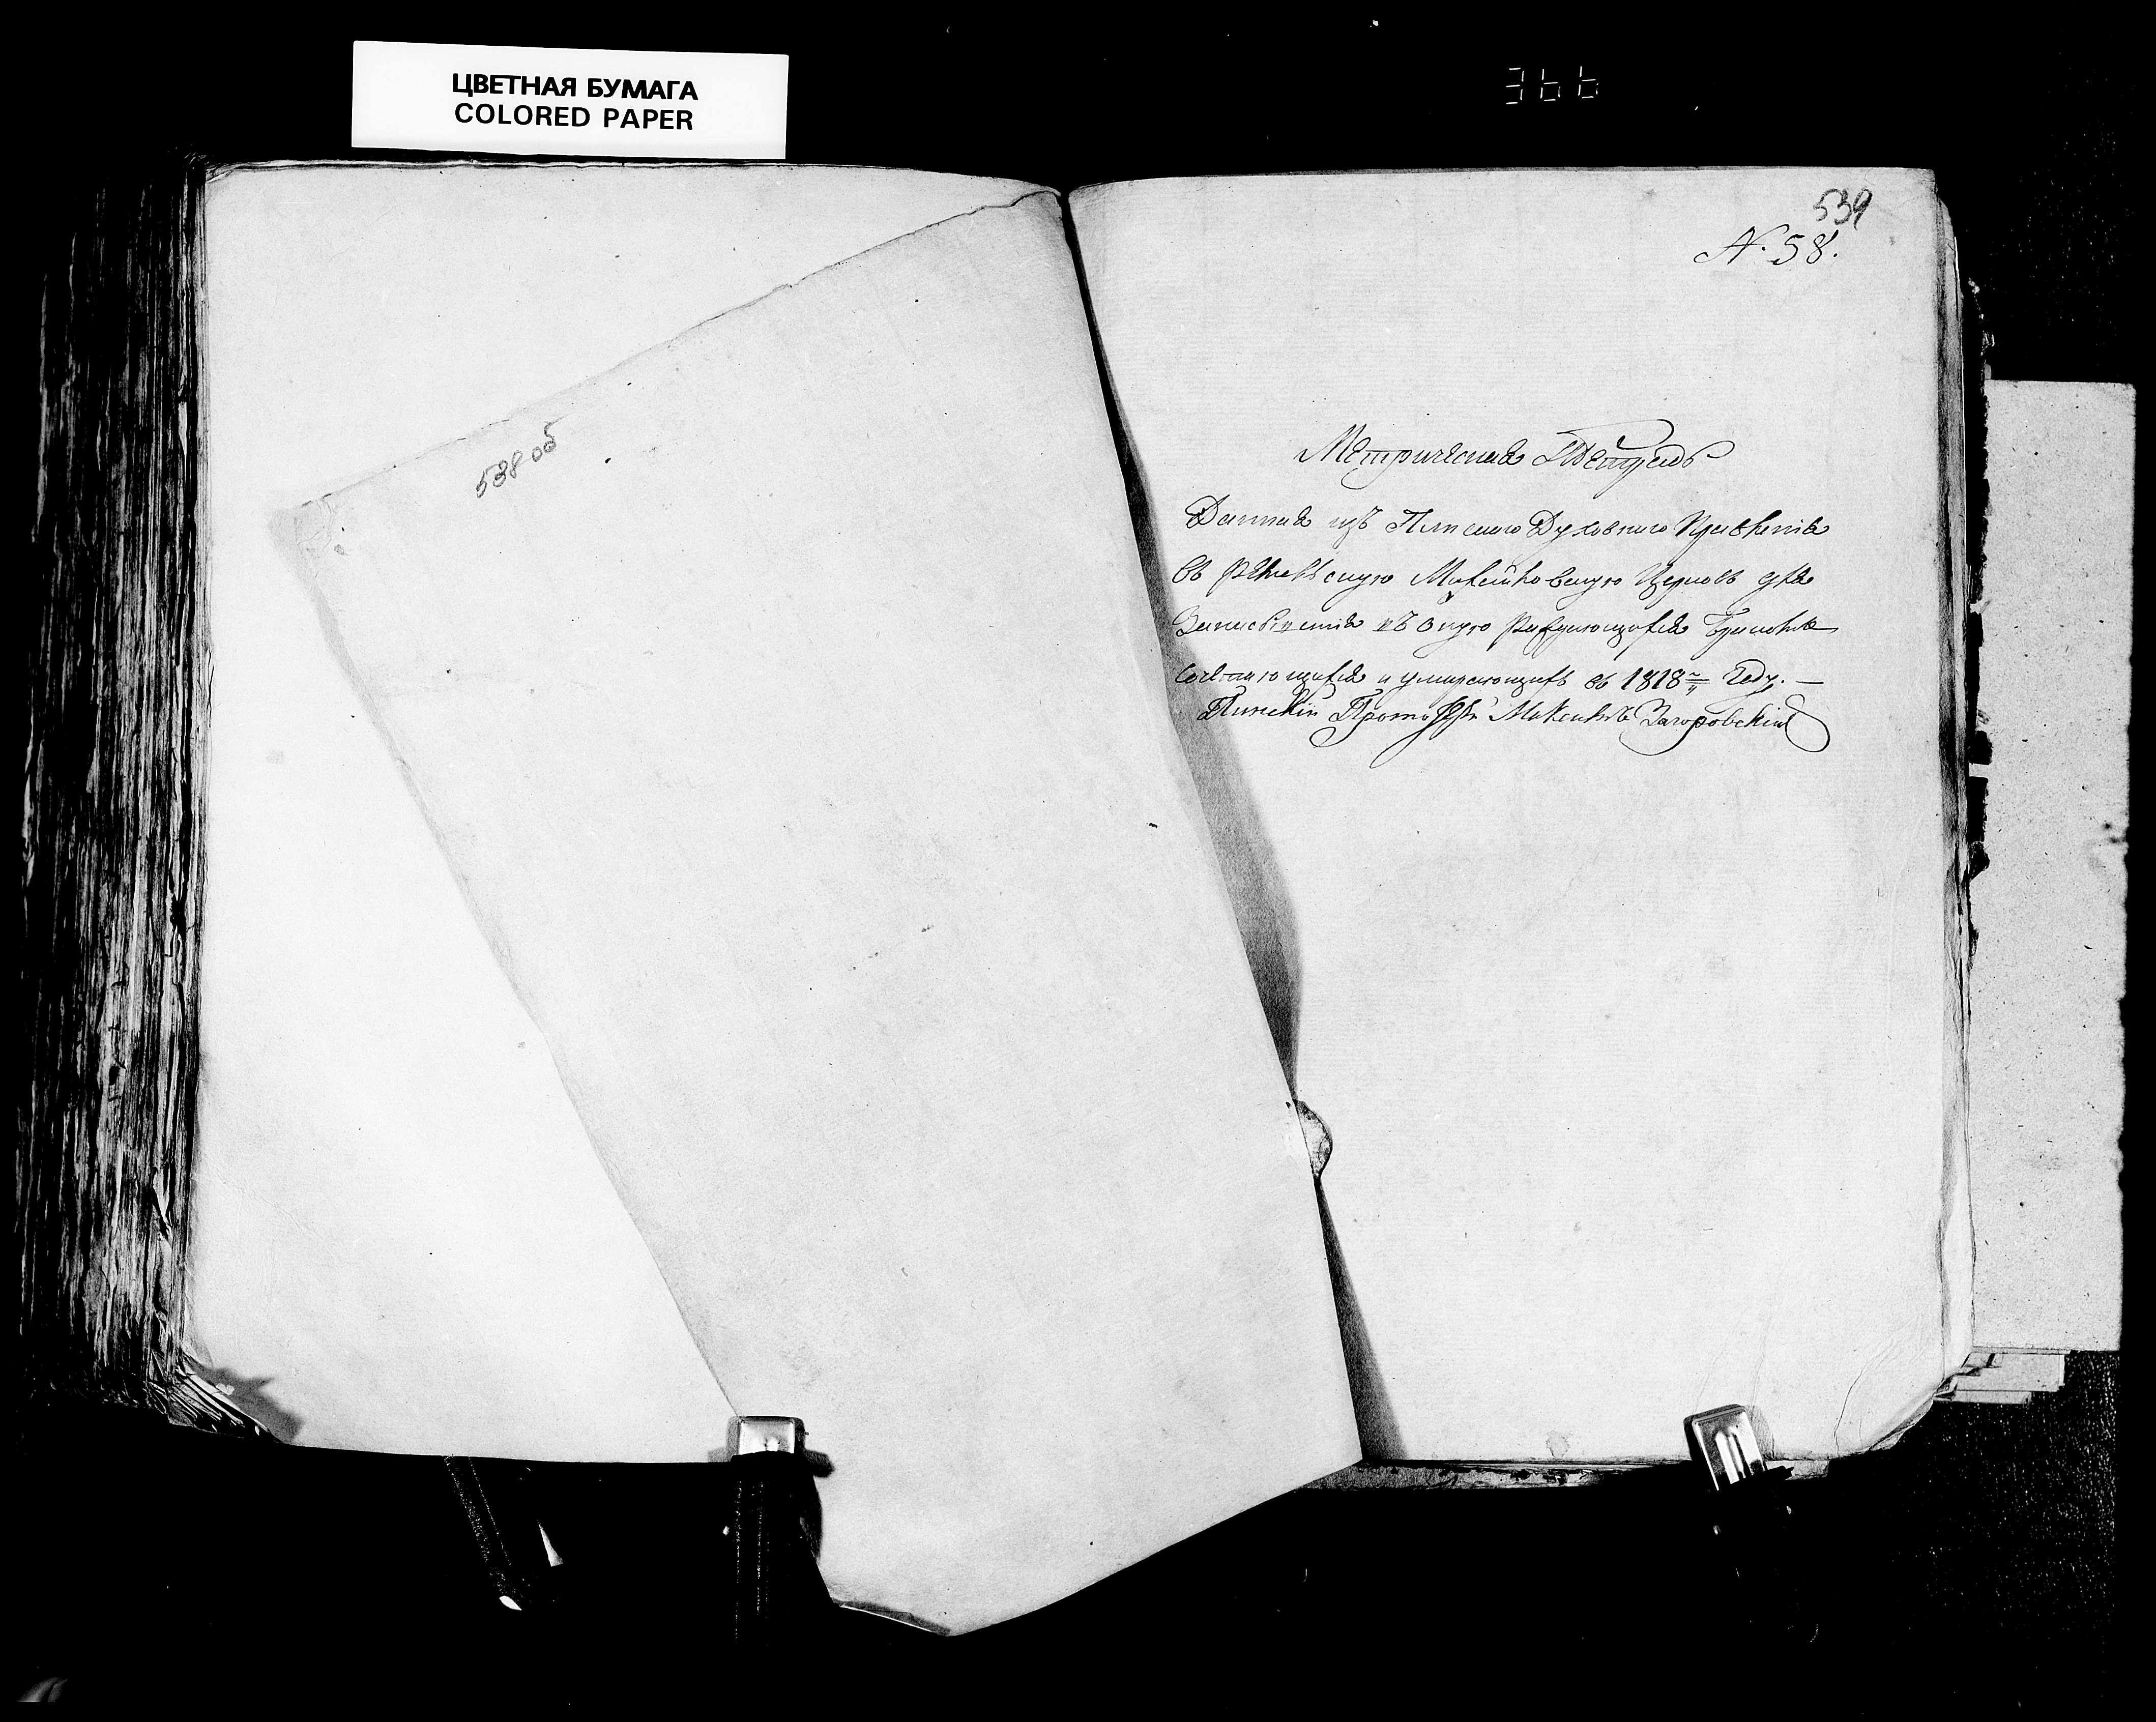 ЦВЕТНАЯ БУМАГА
COLORED PAPER
366
538 об
539
N. 58.
Метрическая Тетрадь
Данная изъ Пинскаго Духовнаго Правленія
въ скую Церковь для
въ оную раждающихся бракомъ
сочетающихся и умирающихъ въ 1818 Году. —
Пинскій Прото Загоровскій